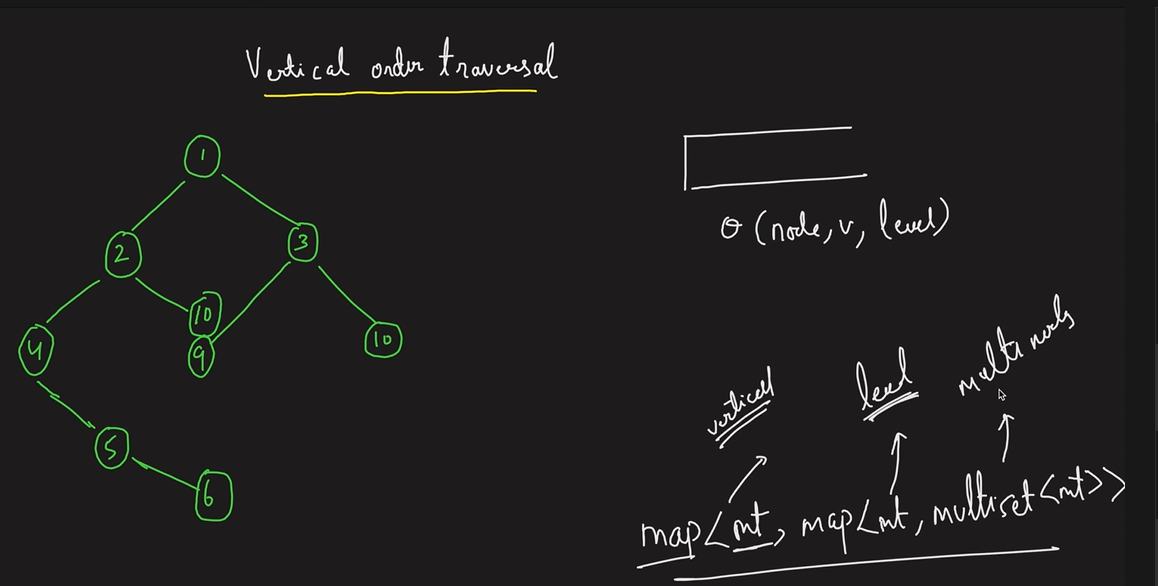 Vertical order traversal
1
2
3
10
9
4
10
5
6
(node, v, level)
vertical
level
multi nodes
map<int, map<int, multiset<int>>>